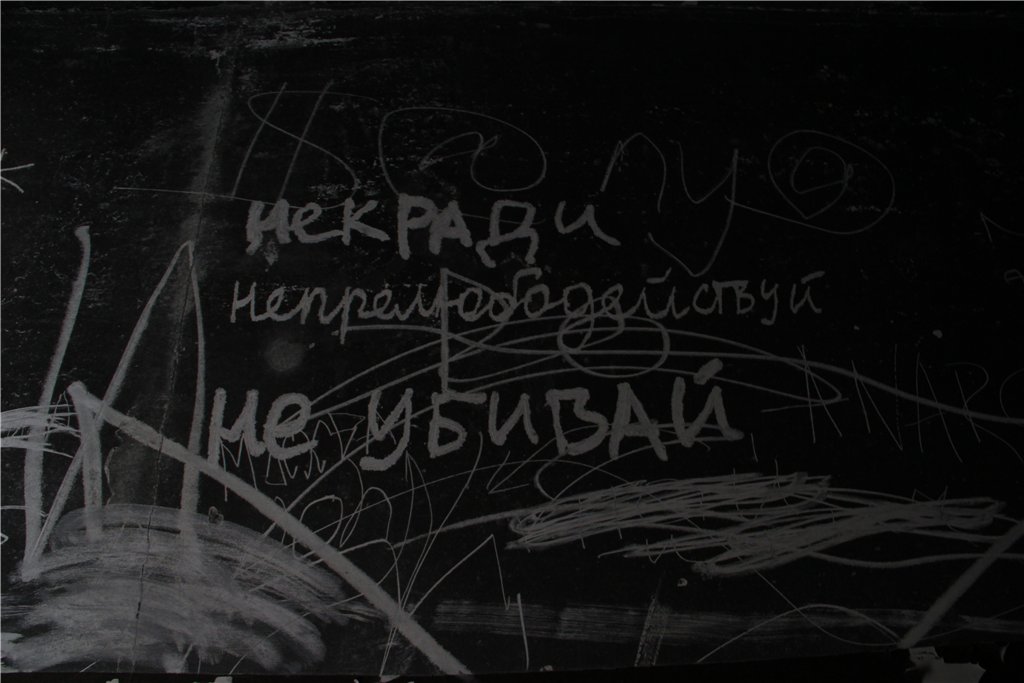 некради
непрелюбодействуй
не убивай
ANARC